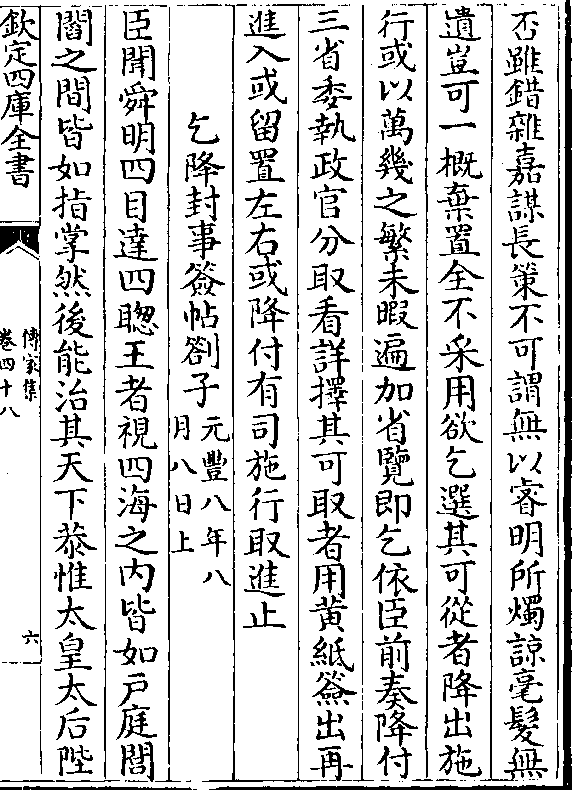 否雖錯雜嘉謀長策不可謂無以睿明所燭諒毫髮無
遺豈可一概棄置全不采用欲乞選其可從者降出施
行或以萬幾之繁未暇遍加省覽即乞依臣前奏降付
三省委執政官分取看詳擇其可取者用黄紙籤出再
進入或留置左右或降付有司施行取進止
乞降封事簽帖劄子元豐八年八
月八日上
臣聞舜明四目達四聰王者視四海之内皆如戸庭閭
閻之間皆如指掌然後能治其天下恭惟太皇太后陛
欽定四庫全書
傳家集
卷四十八
六